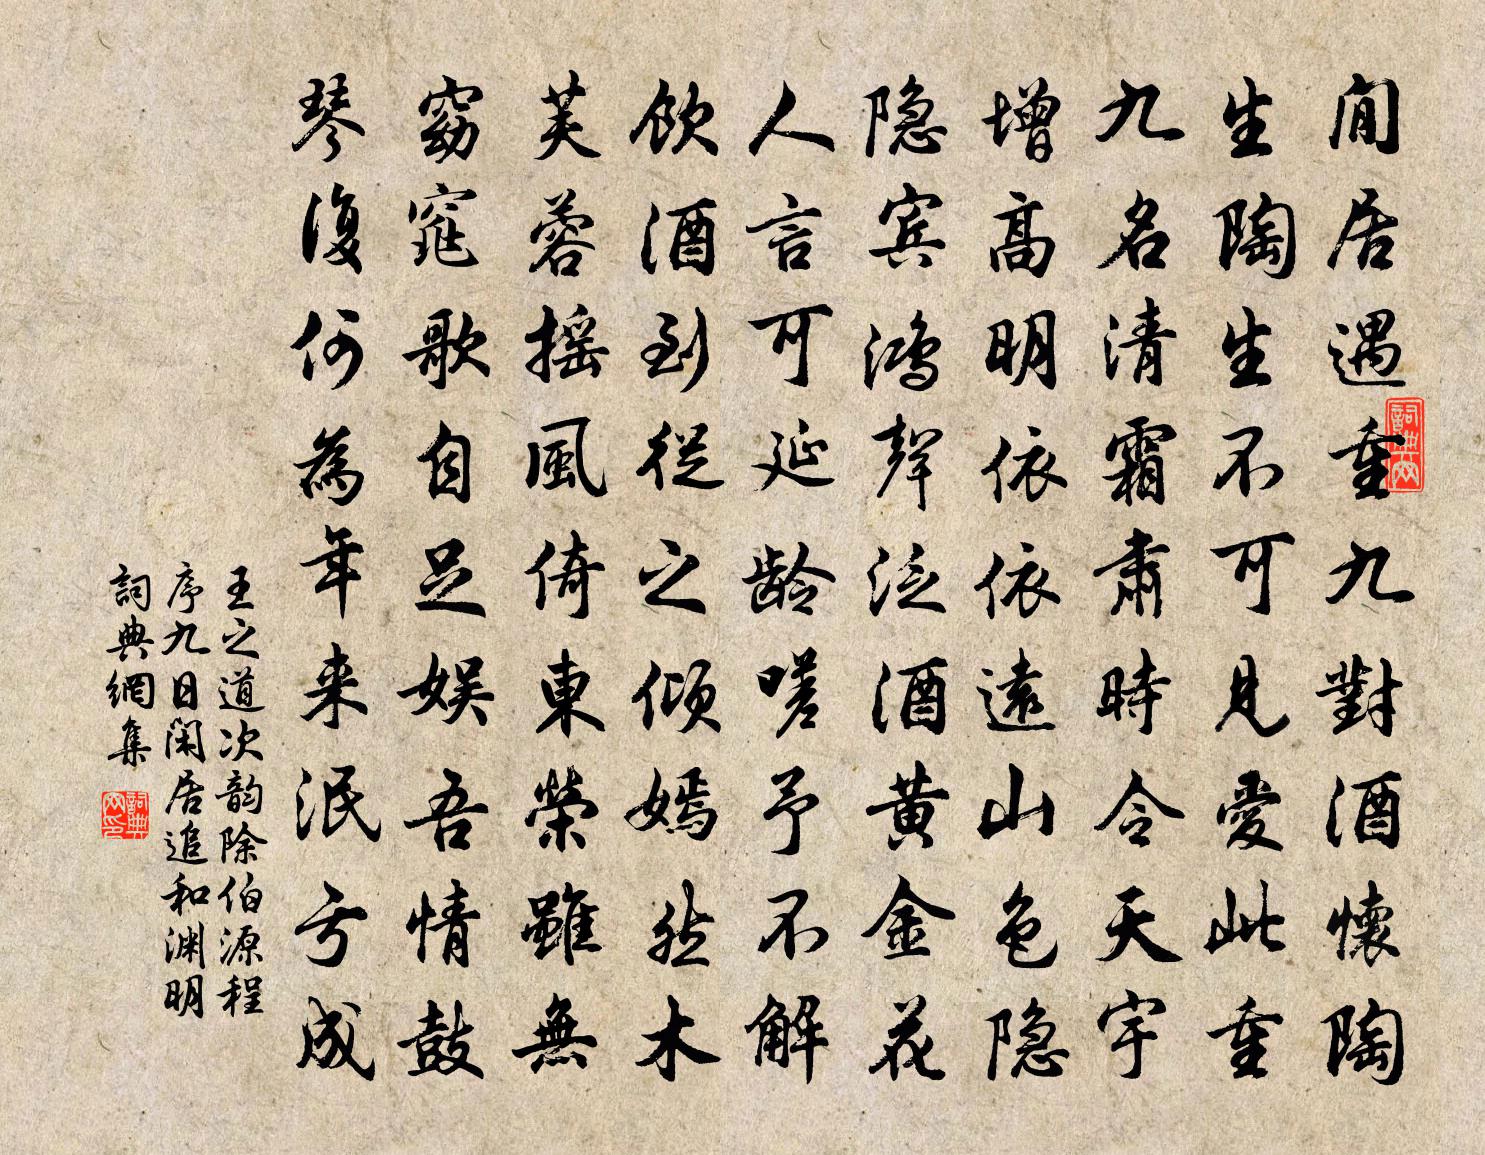 閒居遇重九對酒懷陶
生陶生不可見愛此重
九名清霜肅時令天宇
增高明依依遠山色隐
隐宾鴻聲泛酒黄金花
人言可延龄嗟予不解
飲酒到從之傾嫣然木
芙蓉摇風倚東榮雖無
窈窕歌自足娱吾情鼓
琴復何為年来泯亏成
王之道次韵除伯源程
序九日閑居追和渊明
詞典網集
詞典网
詞典网印